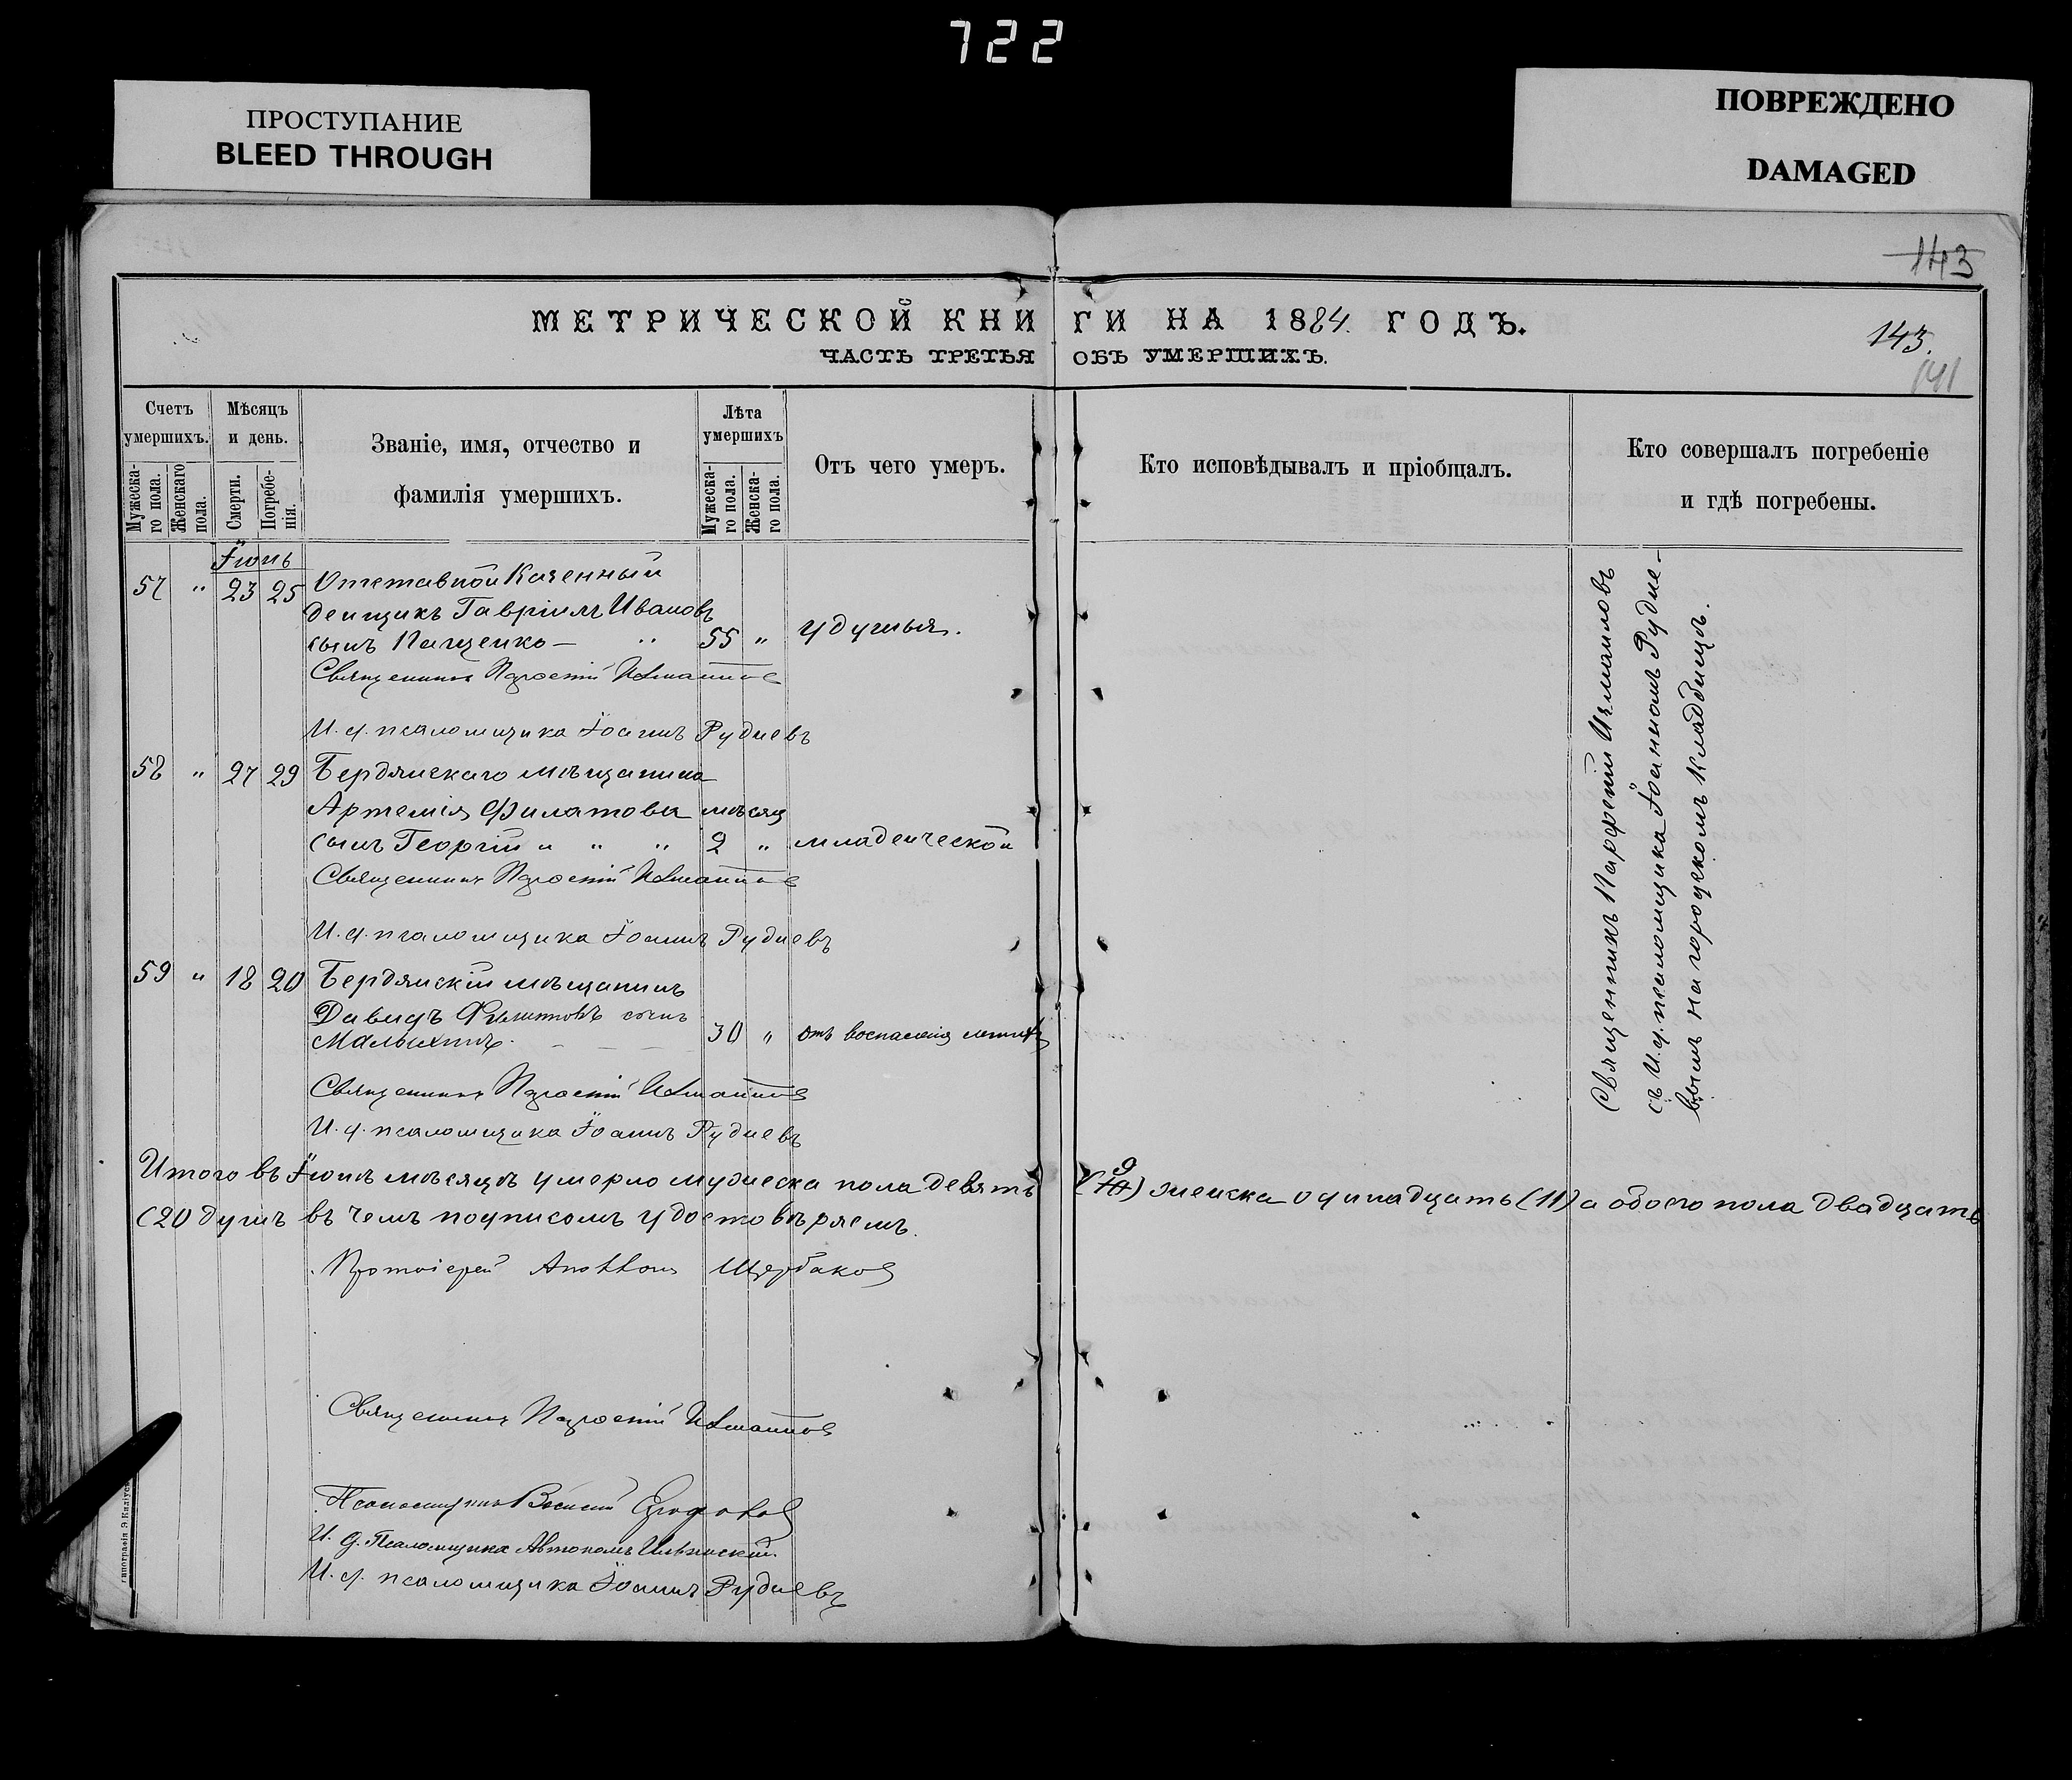 722
ПРОСТУПАНИЕ
BLEED THROUGH
ПОВРЕЖДЕНО
DAMAGED
143
МЕТРИЧЕСКОЙ КНИГИ НА 1884. ГОДЪ.
ЧАСТЬ ТРЕТЬЯ ОБЪ УМЕРШИХЪ.
143.
141
Счетъ умершихъ.
Мужеска-го пола.
Женскаго пола.
Мѣсяцъ и день.
Смерти.
Погребе-нія.
Званіе, имя, отчество и
фамилія умершихъ.
Лѣта умершихъ
Мужеска-го пола.
Женска-го пола.
Отъ чего умеръ.
Кто исповѣдывалъ и пріобщалъ.
Кто совершалъ погребеніе
и гдѣ погребены.
Іюнь
57 " 23 25 Отставной Казенный
денщикъ Гавріилъ Ивановъ
сынъ Пащенко — " 55 " удушья.
Священникъ Парѳеній Измаиловъ
И. д. псаломщика Іоаннъ Рудневъ
58 " 27 29 Бердянскаго мѣщанина
Артемія Филатова мѣсяц
сынъ Георгій " " " 2 " младенческой
Священникъ Парѳеній Измаиловъ
И. д. псаломщика Іоаннъ Рудневъ
59 " 18 20 Бердянскій мѣщанинъ
Давидъ сынъ
Малыхинъ. — — — 30 " отъ воспаленія легкихъ
Священникъ Парѳеній Измаиловъ
И. д. псаломщика Іоаннъ Рудневъ
Священникъ Парфеній Измаиловъ
съ И. д. псаломщика Іоанномъ Рудне-
вымъ на городскомъ кладбищѣ.
Итого въ Іюнѣ мѣсяцѣ умерло мужеска пола девять (9 10) женска одинадцать (11) а обоего пола двадцать
(20 душъ въ чемъ подписомъ удостовѣряемъ.
Протоіерей Щербаковъ
Священникъ Парѳеній Измаиловъ
Псаломщикъ Василій
И. д. Псаломщика Автономъ Ильинскій.
И. д. псаломщика Іоаннъ Рудневъ